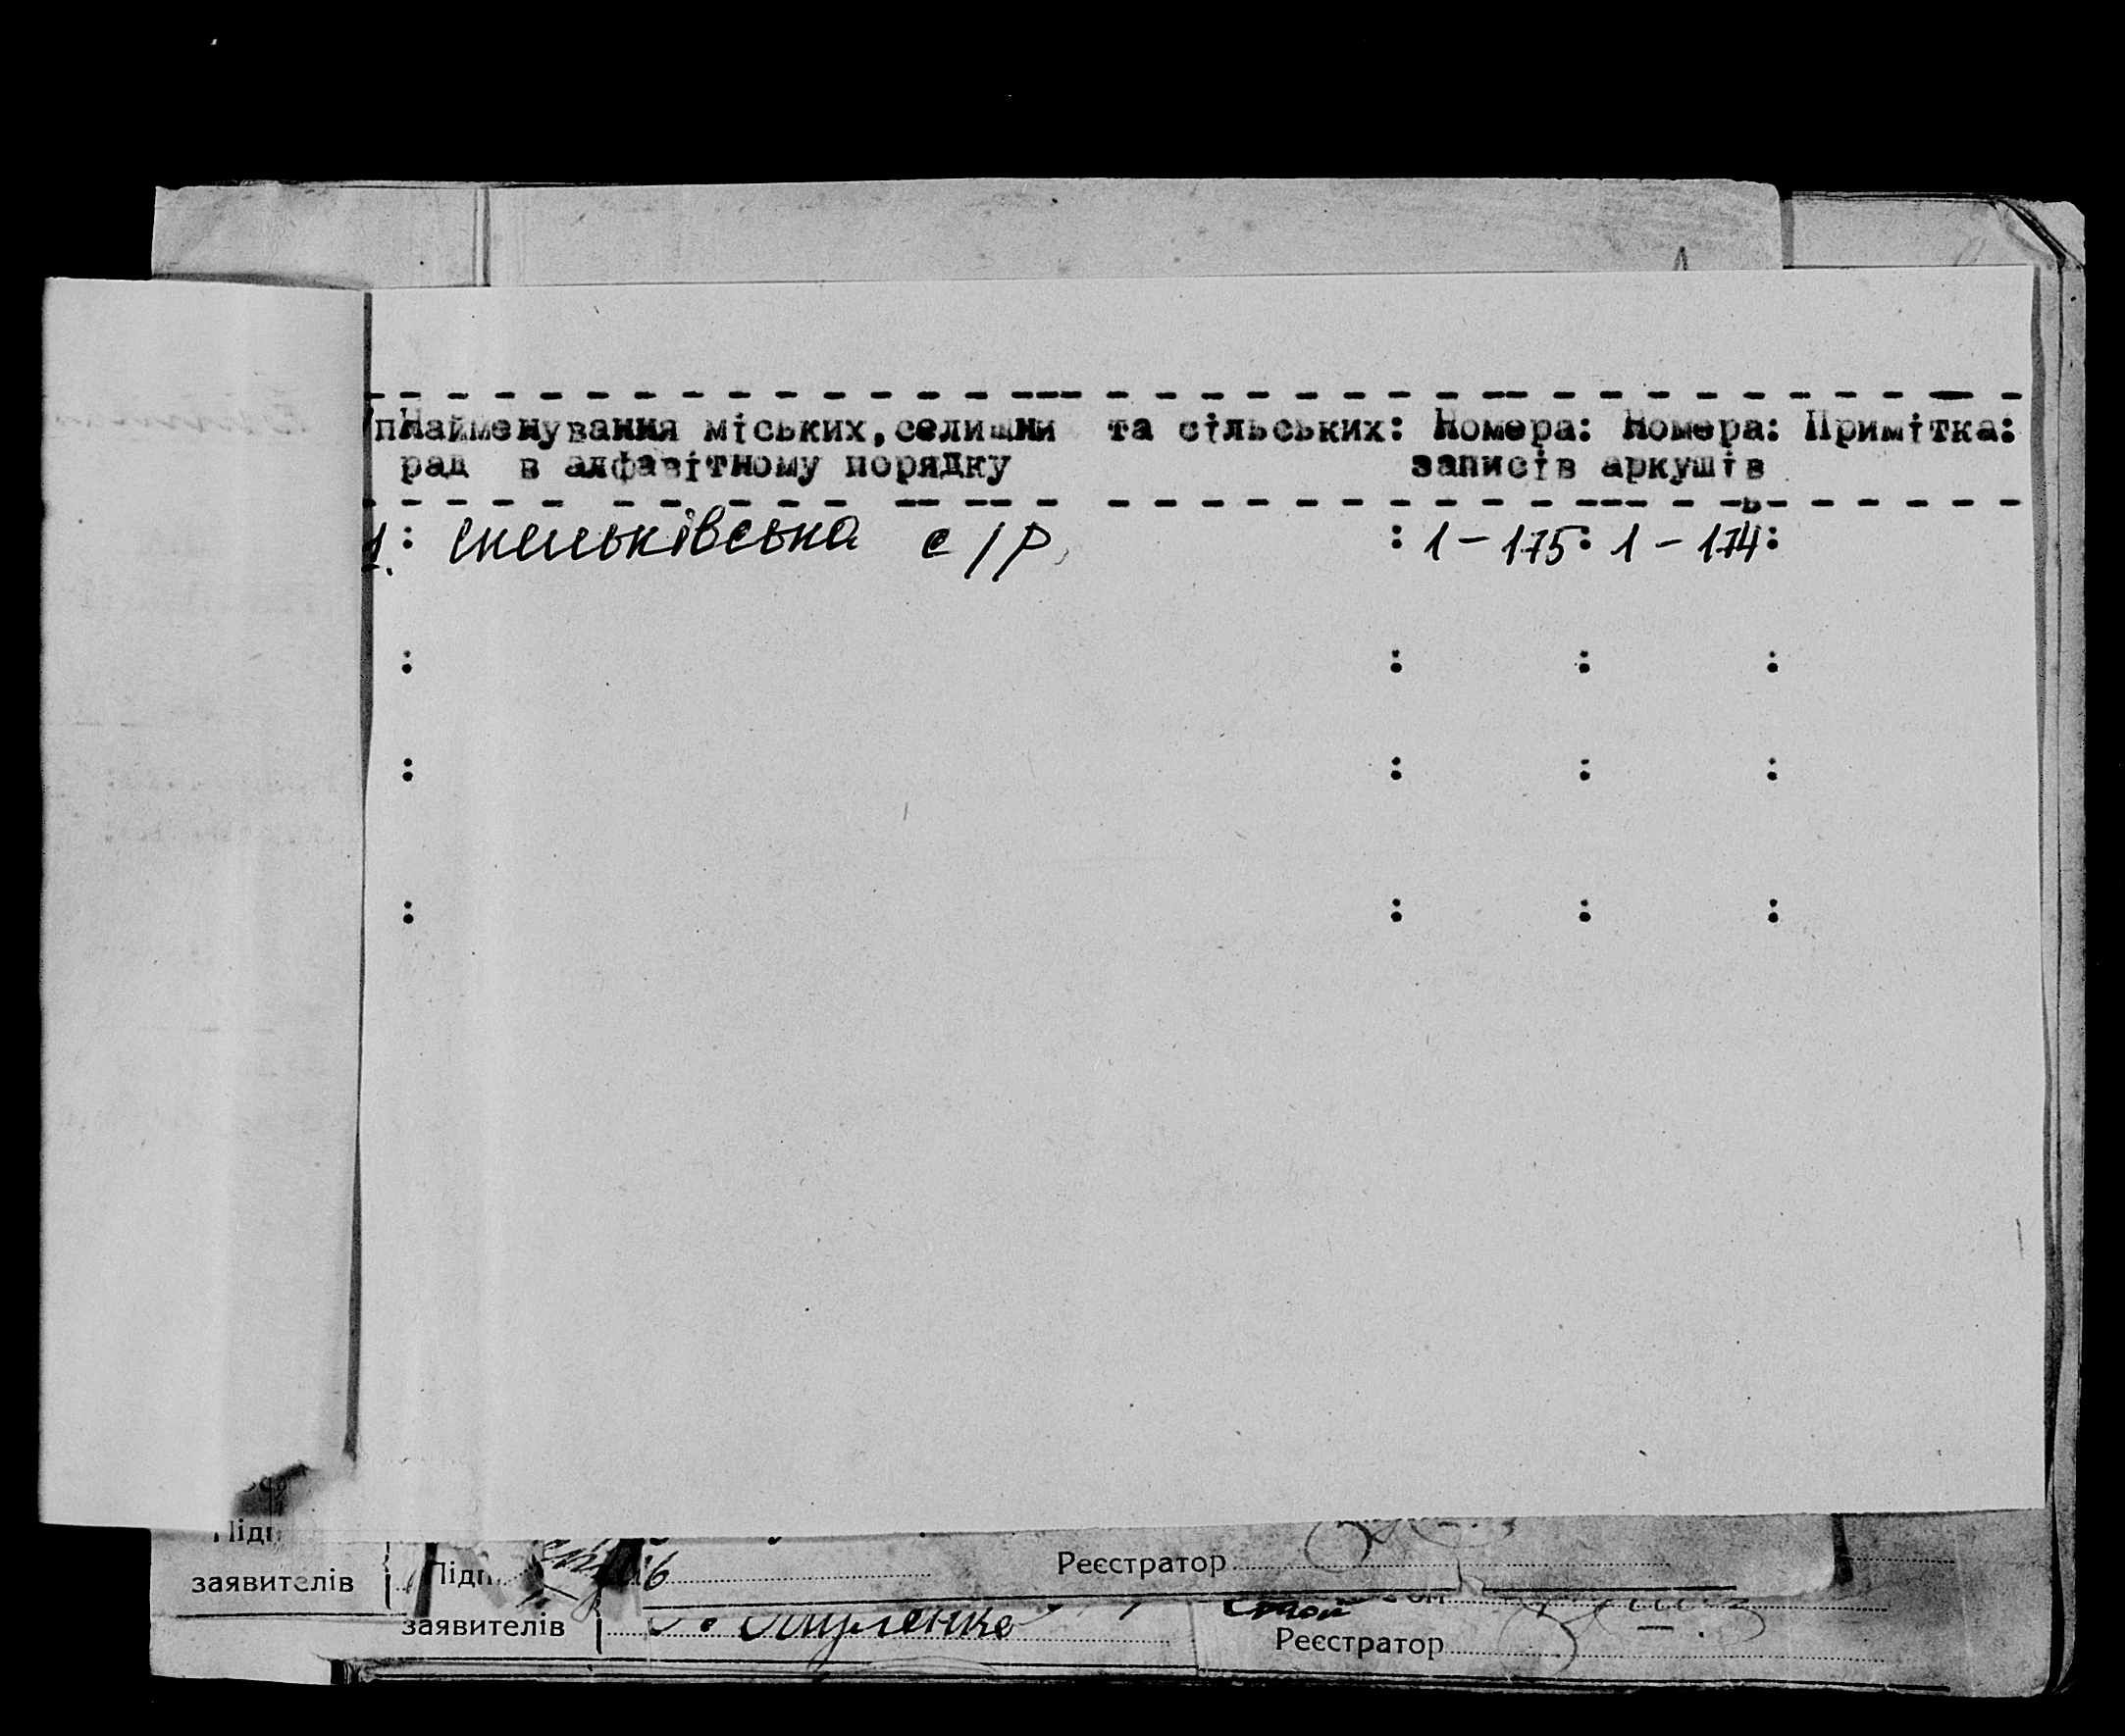 /пНайменування міських,селищни та сільських: Номера: Номера: Примітка:
рад в алфавітному порядку записів аркушів
1. : с/р : 1 – 175: 1 – 174:
: : : :
: : : :
: : : :
Підп.
заявителів
Реєстратор
заявителів
Реєстратор